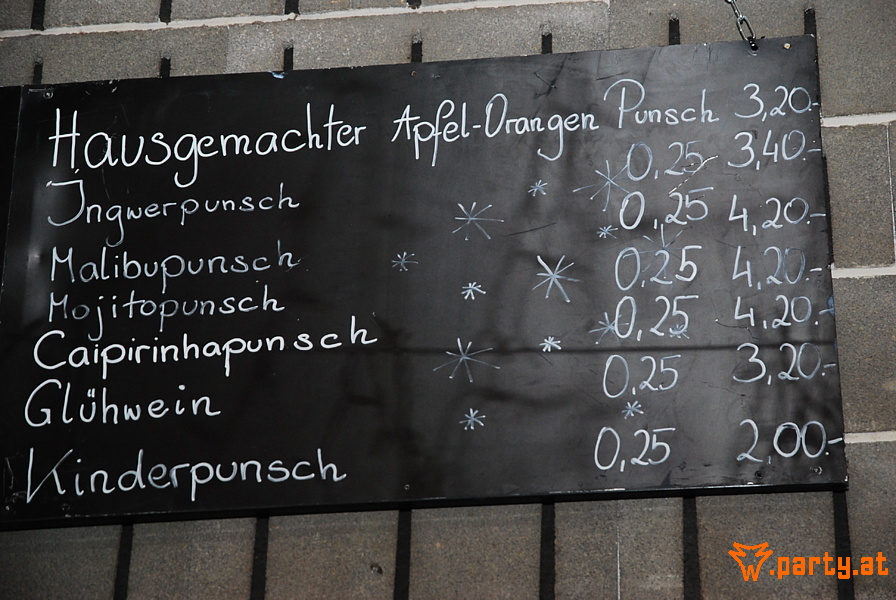 Hausgemachter Apfel-Orangen Punsch 3,20.-
Ingwerpunsch 0,25 3,40.-
Malibupunsch 0,25 4,20.-
Mojitopunsch 0,25 4,20.-
Caipirinhapunsch 0,25 4,20.-
Glühwein 0,25 3,20.-
Kinderpunsch 0,25 2,00.-
.party.at